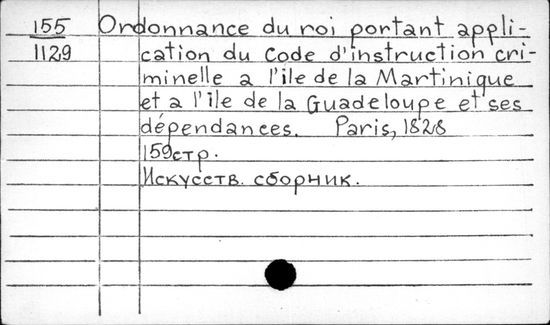 155 Ordonnance du roi portant appli-
1129 cation du Code d'instruction cri-
minelle a l'ile de la Martinique
et a l'ile de la Guadeloupe et ses
dépendances. Paris, 1828
159стр.
Искусств. сборник.